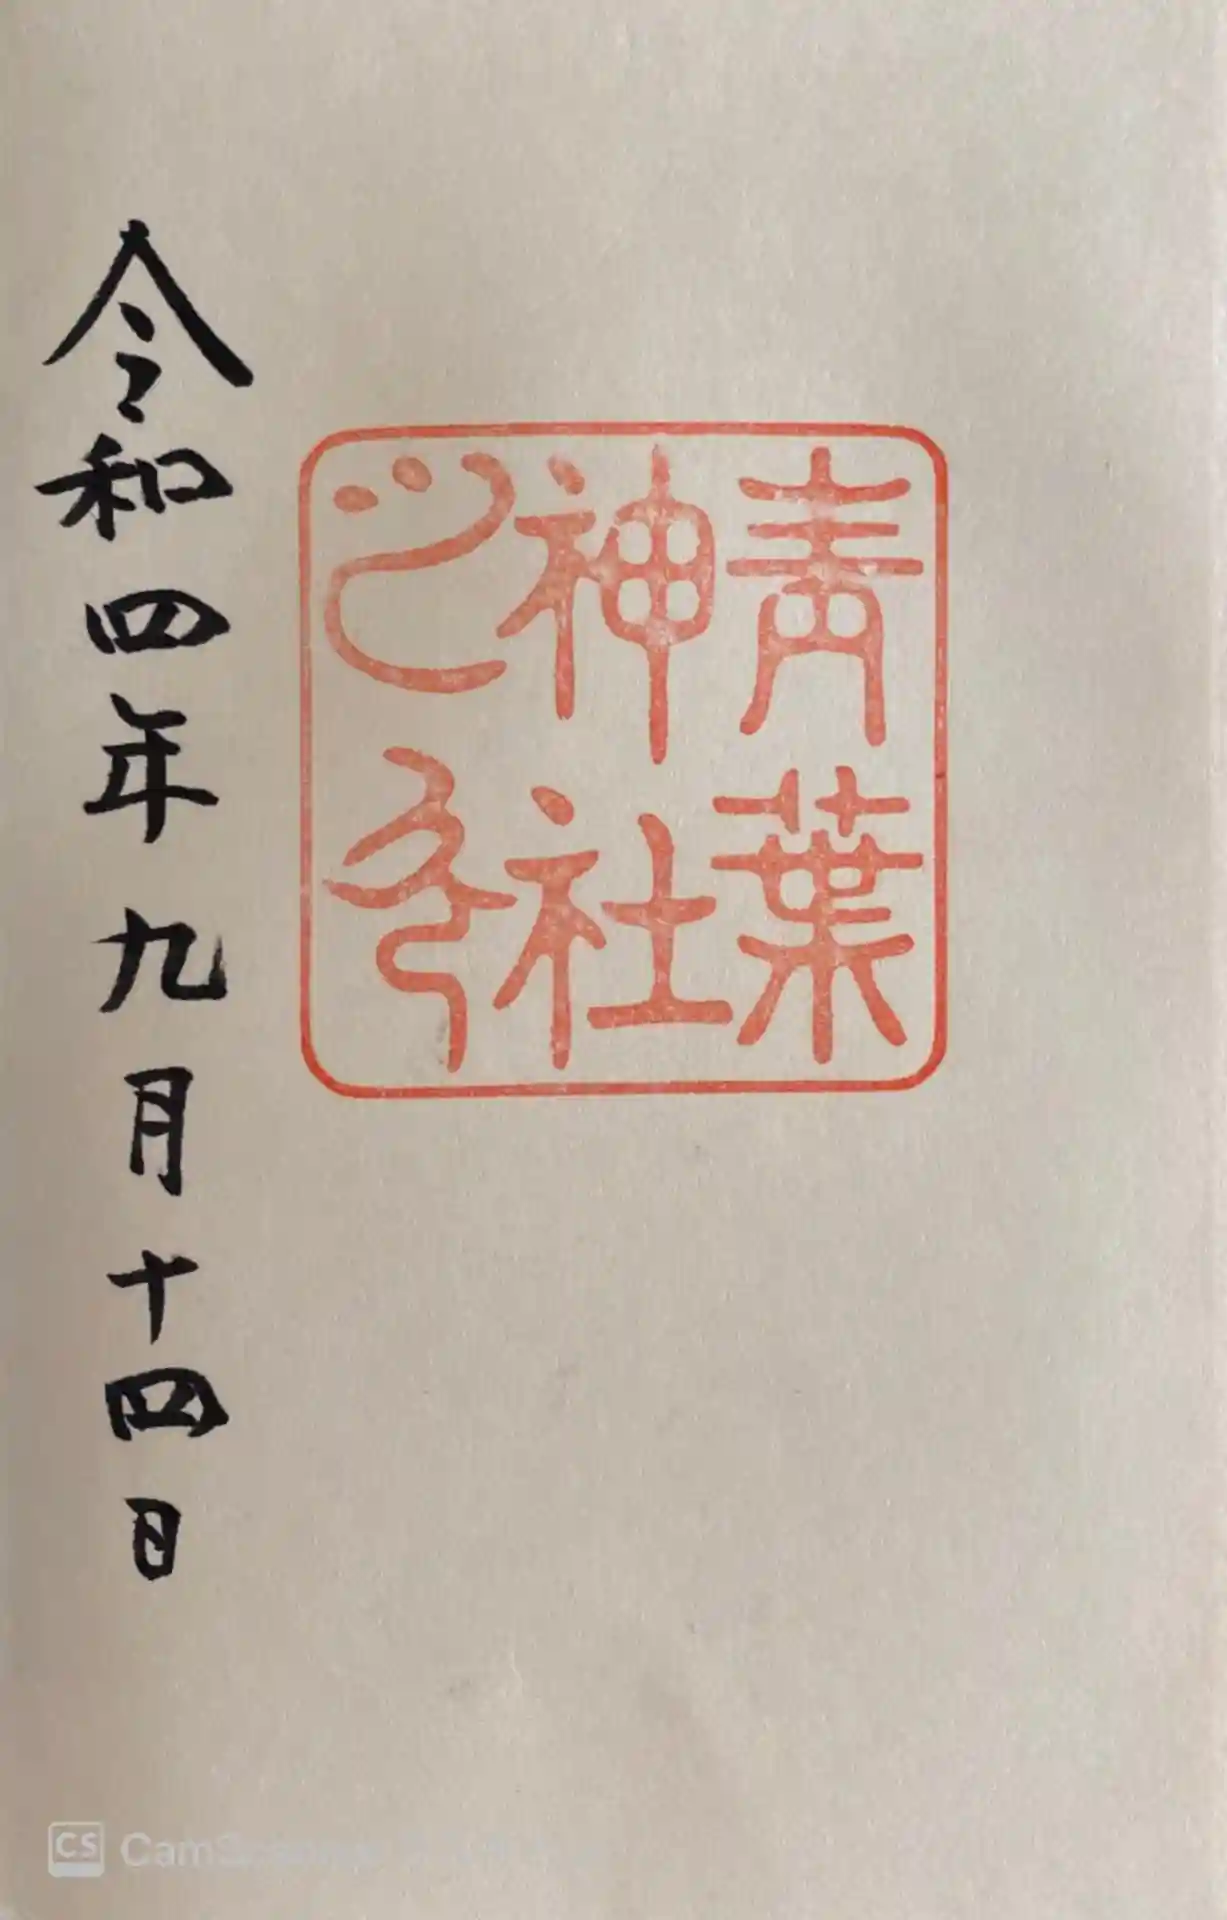 青葉
神社
之印
令和四年九月十四日
CS CamScanner